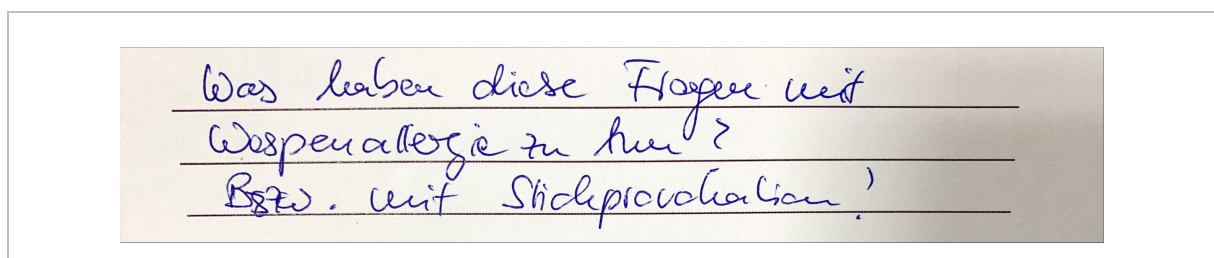 Was haben diese Fragen mit
Wespenallergie zu tun?
Bszw. mit Stichprovokation!